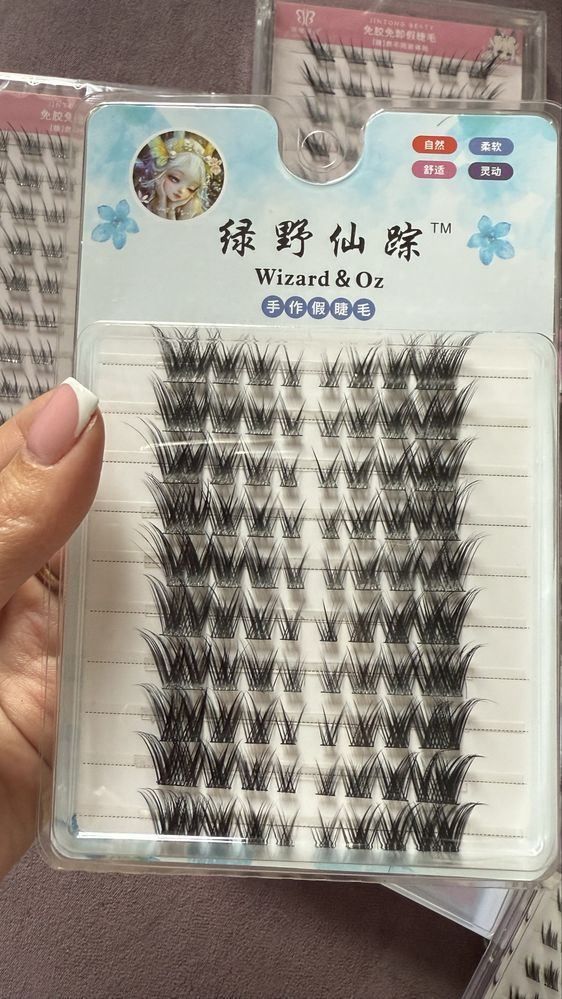 JINTONG BEATY
免胶免卸假睫毛
免胶免
自然
柔软
舒适
灵动
绿野仙踪™
Wizard & Oz
手作假睫毛